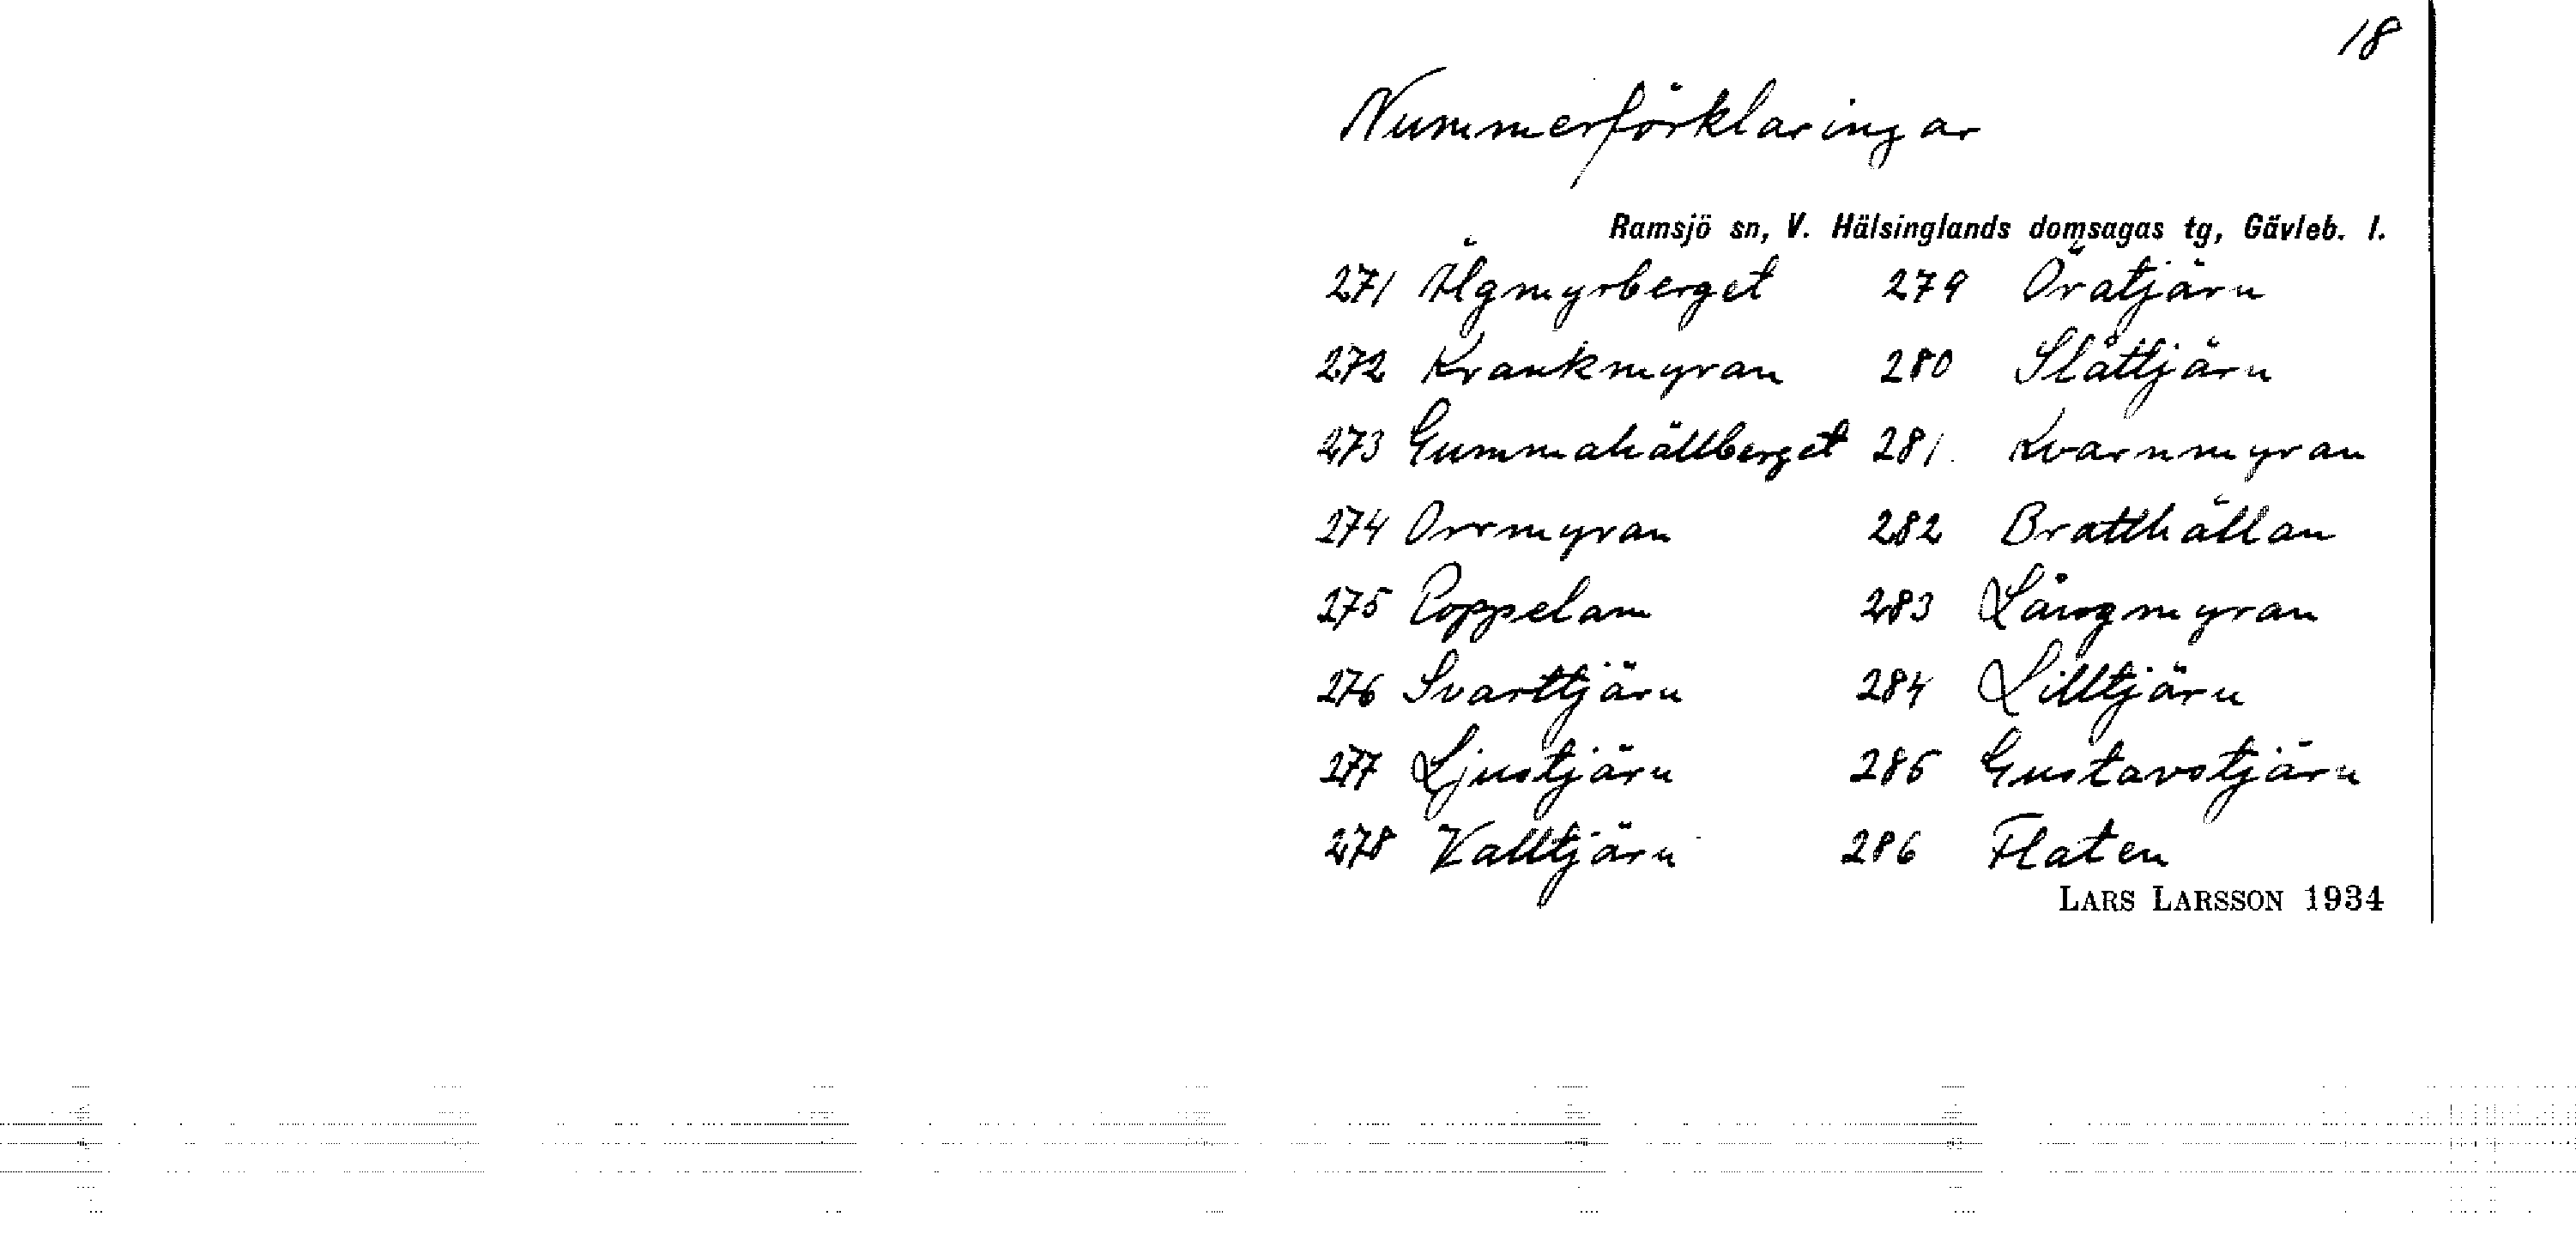 18
Nummerförklaringar
Ramsjö sn, V. Hälsinglands domsagas tg, Gävleb. l.
271 Älgmyrberget 279 Öratjärn
272 Krankmyran 280 Slåttjärn
273 Gummahällberget 281. Kvarnmyran
274 Orrmyran 282 Bratthällan
275 Poppelam 283 Långmyran
276 Svarttjärn 284 Lilltjärn
277 Ljustjärn 285 Gustavstjärn
278 Valltjärn 286 Flaten
LARS LARSSON 1934